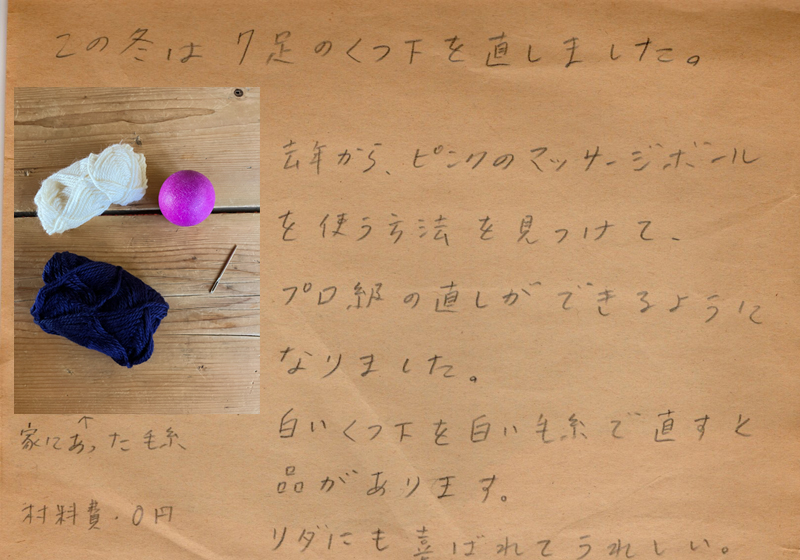 この冬は7足のくつ下を直しました。
去年から、ピンクのマッサージボール
を使う方法を見つけて、
プロ級の直しができるように
なりました。
白いくつ下を白い毛糸で直すと
品があります。
リダにも喜ばれてうれしい。
↑
家にあった毛糸
材料費・0円